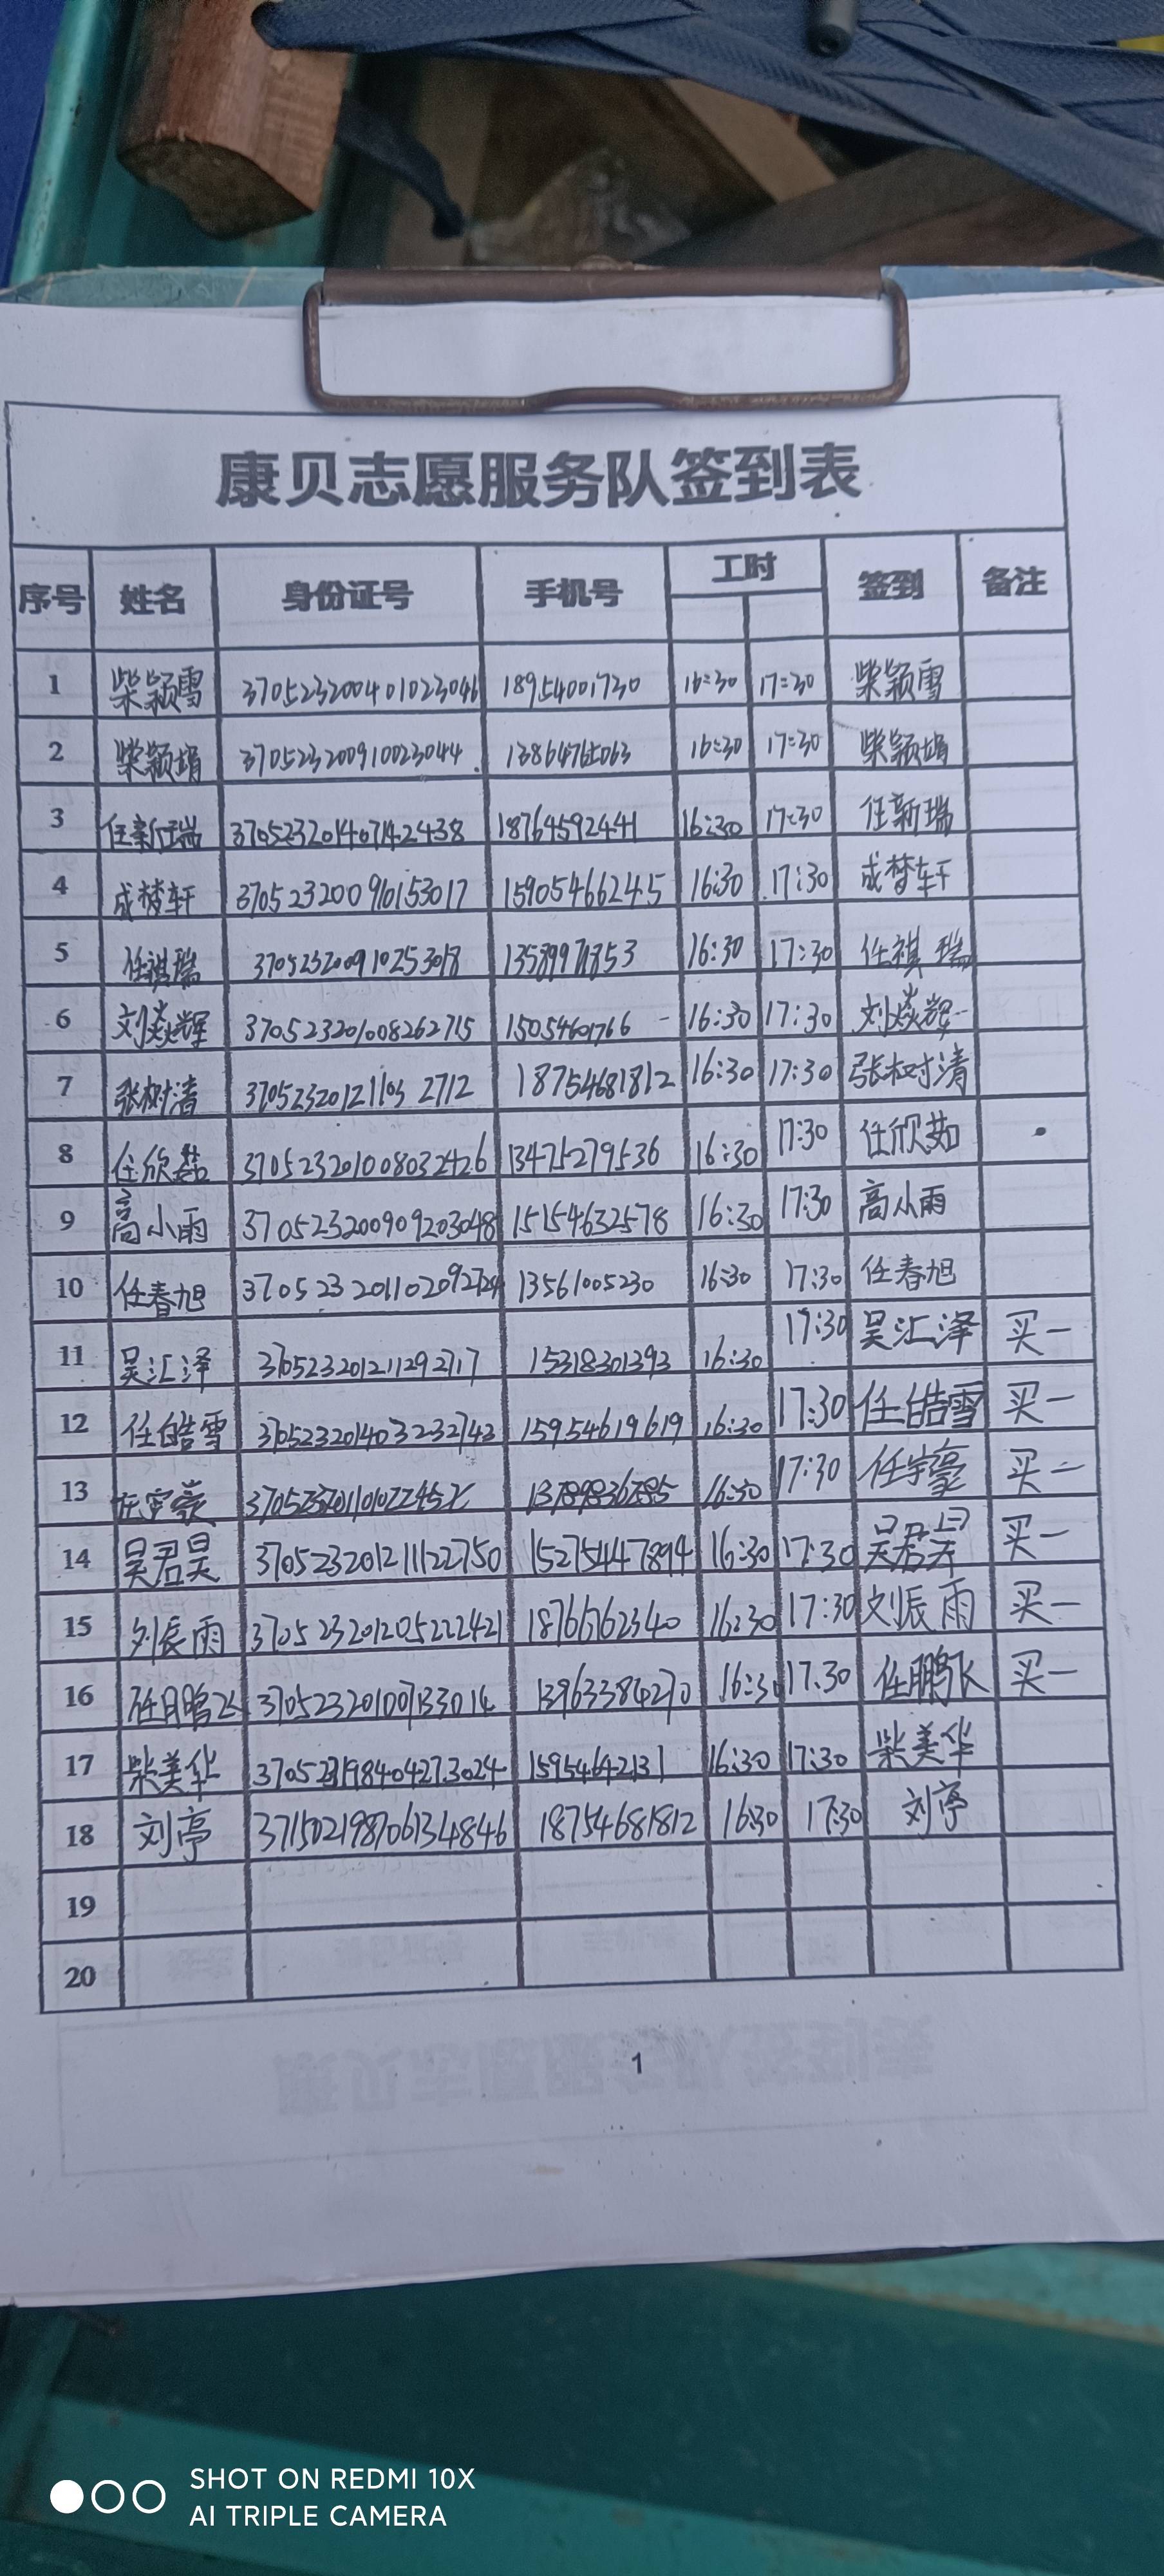 康贝志愿服务队签到表
序号 姓名 身份证号 手机号 工时 签到 备注
1 柴颖雪 370523200401023046 18954001730 16:30 17:30 柴颖雪
2 柴颖娟 370523200910023044 16:30 17:30 柴颖娟
3 任新瑞 370523201407142438 18764592441 16:30 17:30 任新瑞
4 成梦轩 370523200910153017 15905466245 16:30 17:30 成梦轩
5 任祺瑞 370523200910253018 16:30 17:30 任祺瑞
6 刘焱辉 370523201008262715 15054601766 16:30 17:30 刘焱辉
7 张树清 370523201211032712 18754681812 16:30 17:30 张树清
8 任欣茹 370523201008032426 13475279536 16:30 17:30 任欣茹
9 高小雨 370523200909203048 15154632578 16:30 17:30 高小雨
10 任春旭 370523201102092724 13561005230 16:30 17:30 任春旭
11 吴汇泽 370523201211292717 15318301393 16:30 17:30 吴汇泽 买一
12 任皓雪 370523201403232743 15954619619 16:30 17:30 任皓雪 买一
13 任宇豪 16:30 17:30 任宇豪 买一
14 吴君昊 370523201211122750 15275447894 16:30 17:30 吴君昊 买一
15 刘辰雨 370523201205222421 18766762340 16:30 17:30 刘辰雨 买一
16 任鹏飞 370523201007133014 13963384270 16:30 17.30 任鹏飞 买一
17 柴美华 370523198404273024 15954642131 16:30 17:30 柴美华
18 刘亭 371502198706134846 18754681812 16:30 17:30 刘亭
19
20
1
SHOT ON REDMI 10X
AI TRIPLE CAMERA